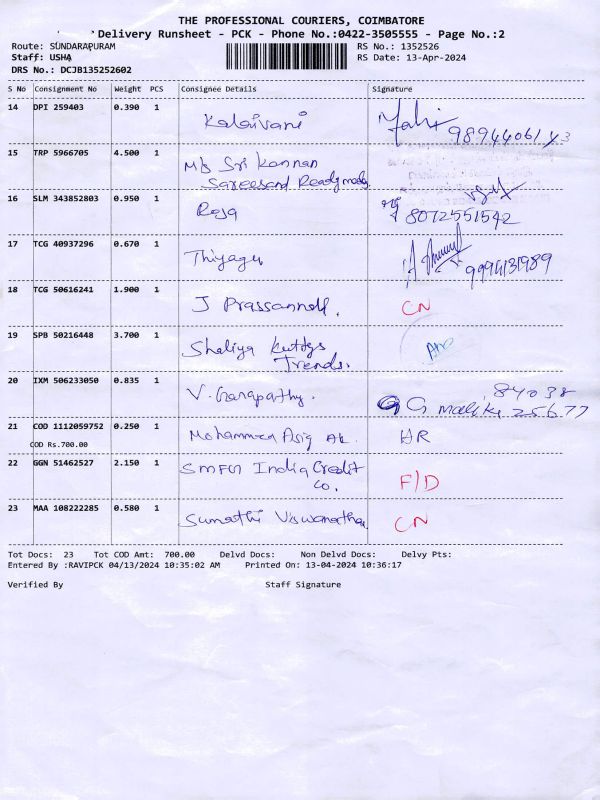 THE PROFESSIONAL COURIERS, COIMBATORE
Delivery Runsheet - PCK - Phone No.:0422-3505555 - Page No.:2
Route: SUNDARAPURAM RS No.: 1352526
Staff: USHA RS Date: 13-Apr-2024
DRS No.: DCJB135252602
S No Consignment No Weight PCS Consignee Details Signature
14 DPI 259403 0.390 1 Kalaivani 98944061 43
15 TRP 5966705 4.500 1 M/s Sri Kannan
Sareesand Readymade
16 SLM 343852803 0.950 1 Roja 8072551542
17 TCG 40937296 0.670 1 Thiyagu 9994131989
18 TCG 50616241 1.900 1 J Prassanna. CN
19 SPB 50216448 3.700 1 Shaliya Kuttys
Trends.
20 IXM 506233050 0.835 1 V. Ganapathy. 84038
G malika 25677
21 COD 1112059752 0.250 1 Mohammed Asiq AR
COD Rs.700.00
22 GGN 51462527 2.150 1 SMFG India Credit
Co. F/D
23 MAA 108222285 0.580 1 Sumathi Viswanathan CN
Tot Docs: 23 Tot COD Amt: 700.00 Delvd Docs: Non Delvd Docs: Delvy Pts:
Entered By :RAVIPCK 04/13/2024 10:35:02 AM Printed On: 13-04-2024 10:36:17
Verified By Staff Signature